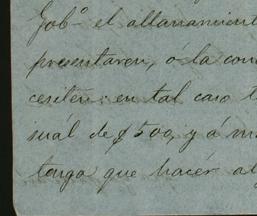 Gob.º el allanamient
presentaren, ó la con
cesiten: en tal caso t
suál de $500, y á m
tenga que hacér al